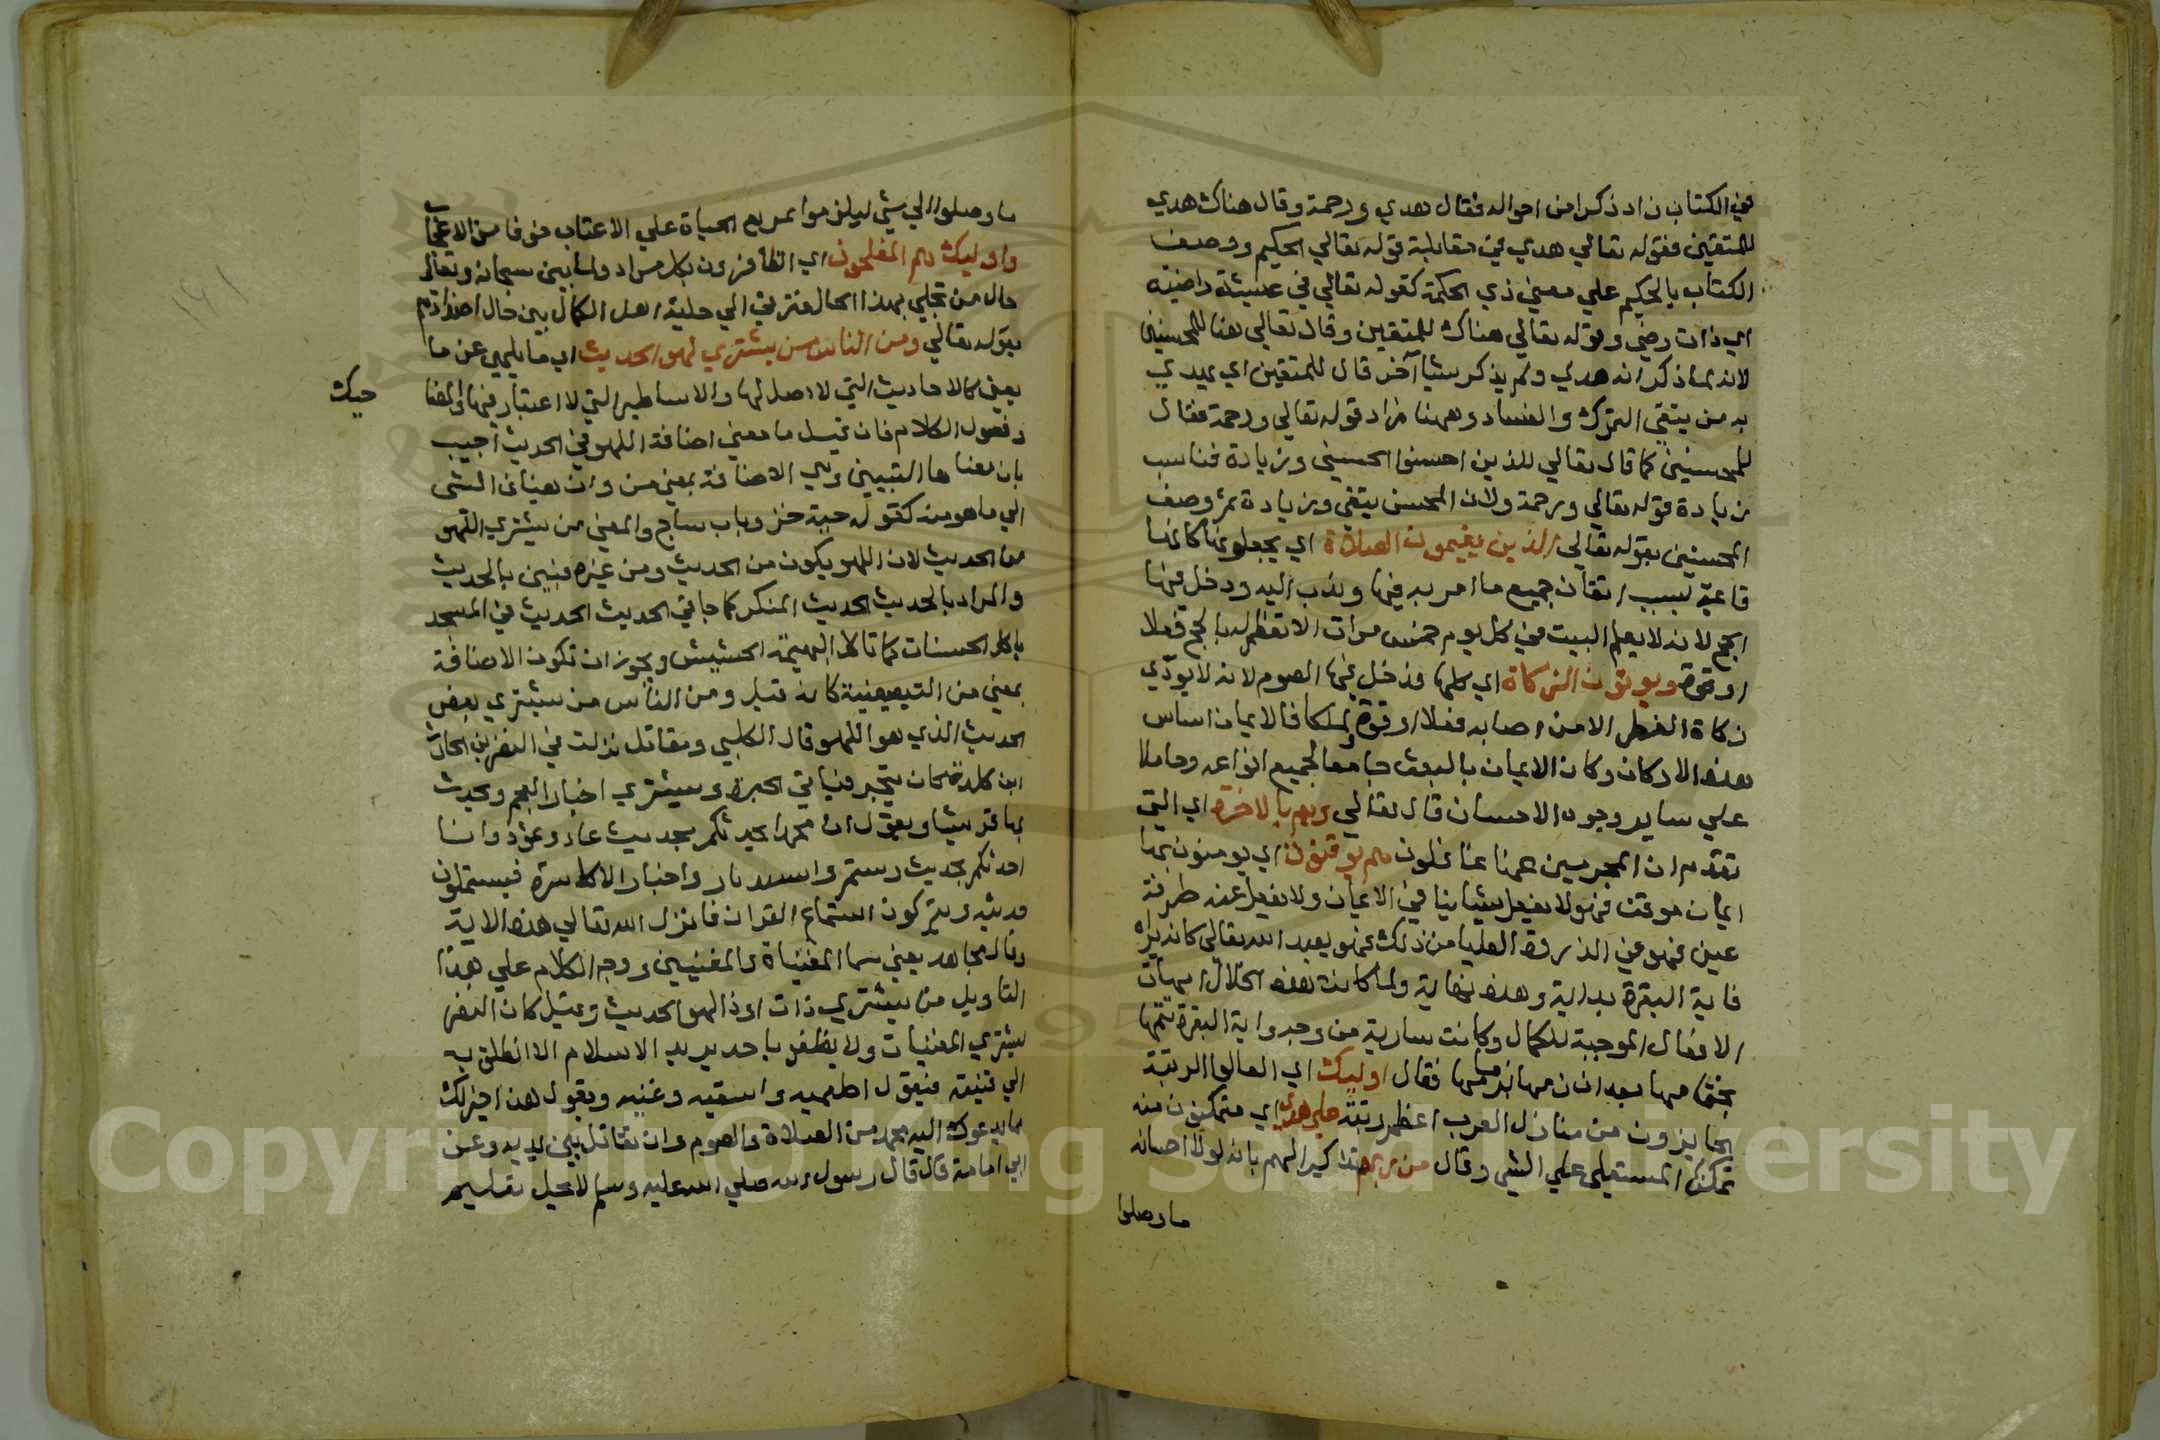 في الكتاب زاد ذكرا من احواله فقال هدي ورحمة وقال هناك هدي
للمتقين فقوله تعالي هدي في مقابلة قوله تعالي الحكيم ووصف
الكتاب بالحكيم علي معني ذي الحكمة كقوله تعالي في عيشة راضية
اي ذات رضي وقوله تعالي هناك للمتقين وقال تعالي هنا للمحسنين
لانه لما ذكر انه هدي ولم يذكر شيا آخر قال للمتقين اي يهدي
به من يتقي الشرك والعناد وههنا زاد قوله تعالي ورحمة فقال
للمحسنين كما قال تعالي للذين احسنوا الحسني وزيادة فناسب
زيادة قوله تعالي ورحمة ولان المحسن يتقي وزيادة ثم وصف
المحسنين بقوله تعالي الذين يقيمون الصلاة اي يجعلونها كانها
قاعية بسبب اتقان جميع ما امر به فيها وندب اليه ودخل فيها
الحج لانه لا يعلم البيت في كل يوم خمس مرات الا تعظيم له بالحج فعلا
او قوة ويوتون الزكاة اي كلها فدخل فيها الصوم لانه لا يودي
زكاة الفطر الا من صامه فعلا او قوة ولما كان الايمان اساس
هذه الاركان وكان الايمان بالبعث جامعا لجميع انواعه وحاملا
علي ساير وجوه الاحسان قال تعالي وهم بالاخرة اي التي
تقدم ان المجرمين عنها غافلون هم يوقنون اي يومنون بها
ايمان موقن فهو لا يفعل شيا ينافي الايمان ولا يغفل عنه طرفة
عين فهو في الذروة العليا من ذلك فهو يعبد الله تعالي كانه يراه
فاية البقرة بداية وهذه نهاية ولما كانت هذه الخلال امهات
الافعال الموجبة للكمال وكانت سارية من وجه واية البقرة ختمها
بختامها بعد ان زمها بزمامها فقال اوليك اي العالوا الرتبة
الحايزون من منازل القرب اعظم رتبة علي هدي اي متمكنون منه
تمكن المستعلي علي الشي وقال من ربهم تذكيرا لهم بانه لولا احسانه
ما وصلوا
ما وصلوا الي شي ليلزموا تمريغ الجباه علي الاعتاب خوفا من الاعجاب
واوليك هم المفلحون اي الظافرون بكل مراد ولما بين سبحانه وتعالى
حال من تحلي بهذا الحال فترقي الي حلية اهل الكمال بين حال اضدادهم
بقوله تعالي ومن الناس من يشتري لهو الحديث اي ما يلهي عن ما
يعني كالاحاديث التي لا اصل لها والاساطير التي لا اعتبار فيها والمضا
حيك
وفضول الكلام فان قيل ما معني اضافة اللهو في الحديث اجيب
بان معناها التبيين وهي الاضافة بمعني من وان تضاف الشي
الي ما هو منه كقوله جبة خز وباب ساج والمعني من يشتري اللهو
من الحديث لان اللهو يكون من الحديث ومن غيره فبين بالحديث
والمراد بالحديث الحديث المنكر كما جا في الحديث الحديث في المسجد
ياكل الحسنات كما تاكل البهيمة الحشيش ويجوز ان تكون الاضافة
بمعني من التبعيضية كانه قيل ومن الناس من يشتري بعض
الحديث الذي هو اللهو قال الكلبي ومقاتل نزلت في النضر بن الحارث
ابن كلدة كان يتجر فياتي الحيرة ويشتري اخبار العجم ويحدث
بها قريشا ويقول ان محمدا يحدثكم بحديث عاد وثمود وانا
احدثكم بحديث رستم واسفنديار واخبار الاكاسرة فيستملحون
حديثه ويتركون استماع القران فانزل الله تعالي هذه الاية
وقال مجاهد يعني شرا المغنيات والمغنيين ووجه الكلام علي هذا
التاويل من يشتري ذات او ذا لهو الحديث وقيل كان النضر
يشتري المغنيات ولا يظفر باحد يريد الاسلام الا انطلق به
الي قينته فيقول اطعميه واسقيه وغنيه ويقول هذا خير لك
مما يدعوك اليه محمد من الصلاة والصوم وان تقاتل بين يديه وعن
ابي امامة قال قال رسول الله صلي الله عليه وسلم لا يحل تعليم
Copyright © King Saud University